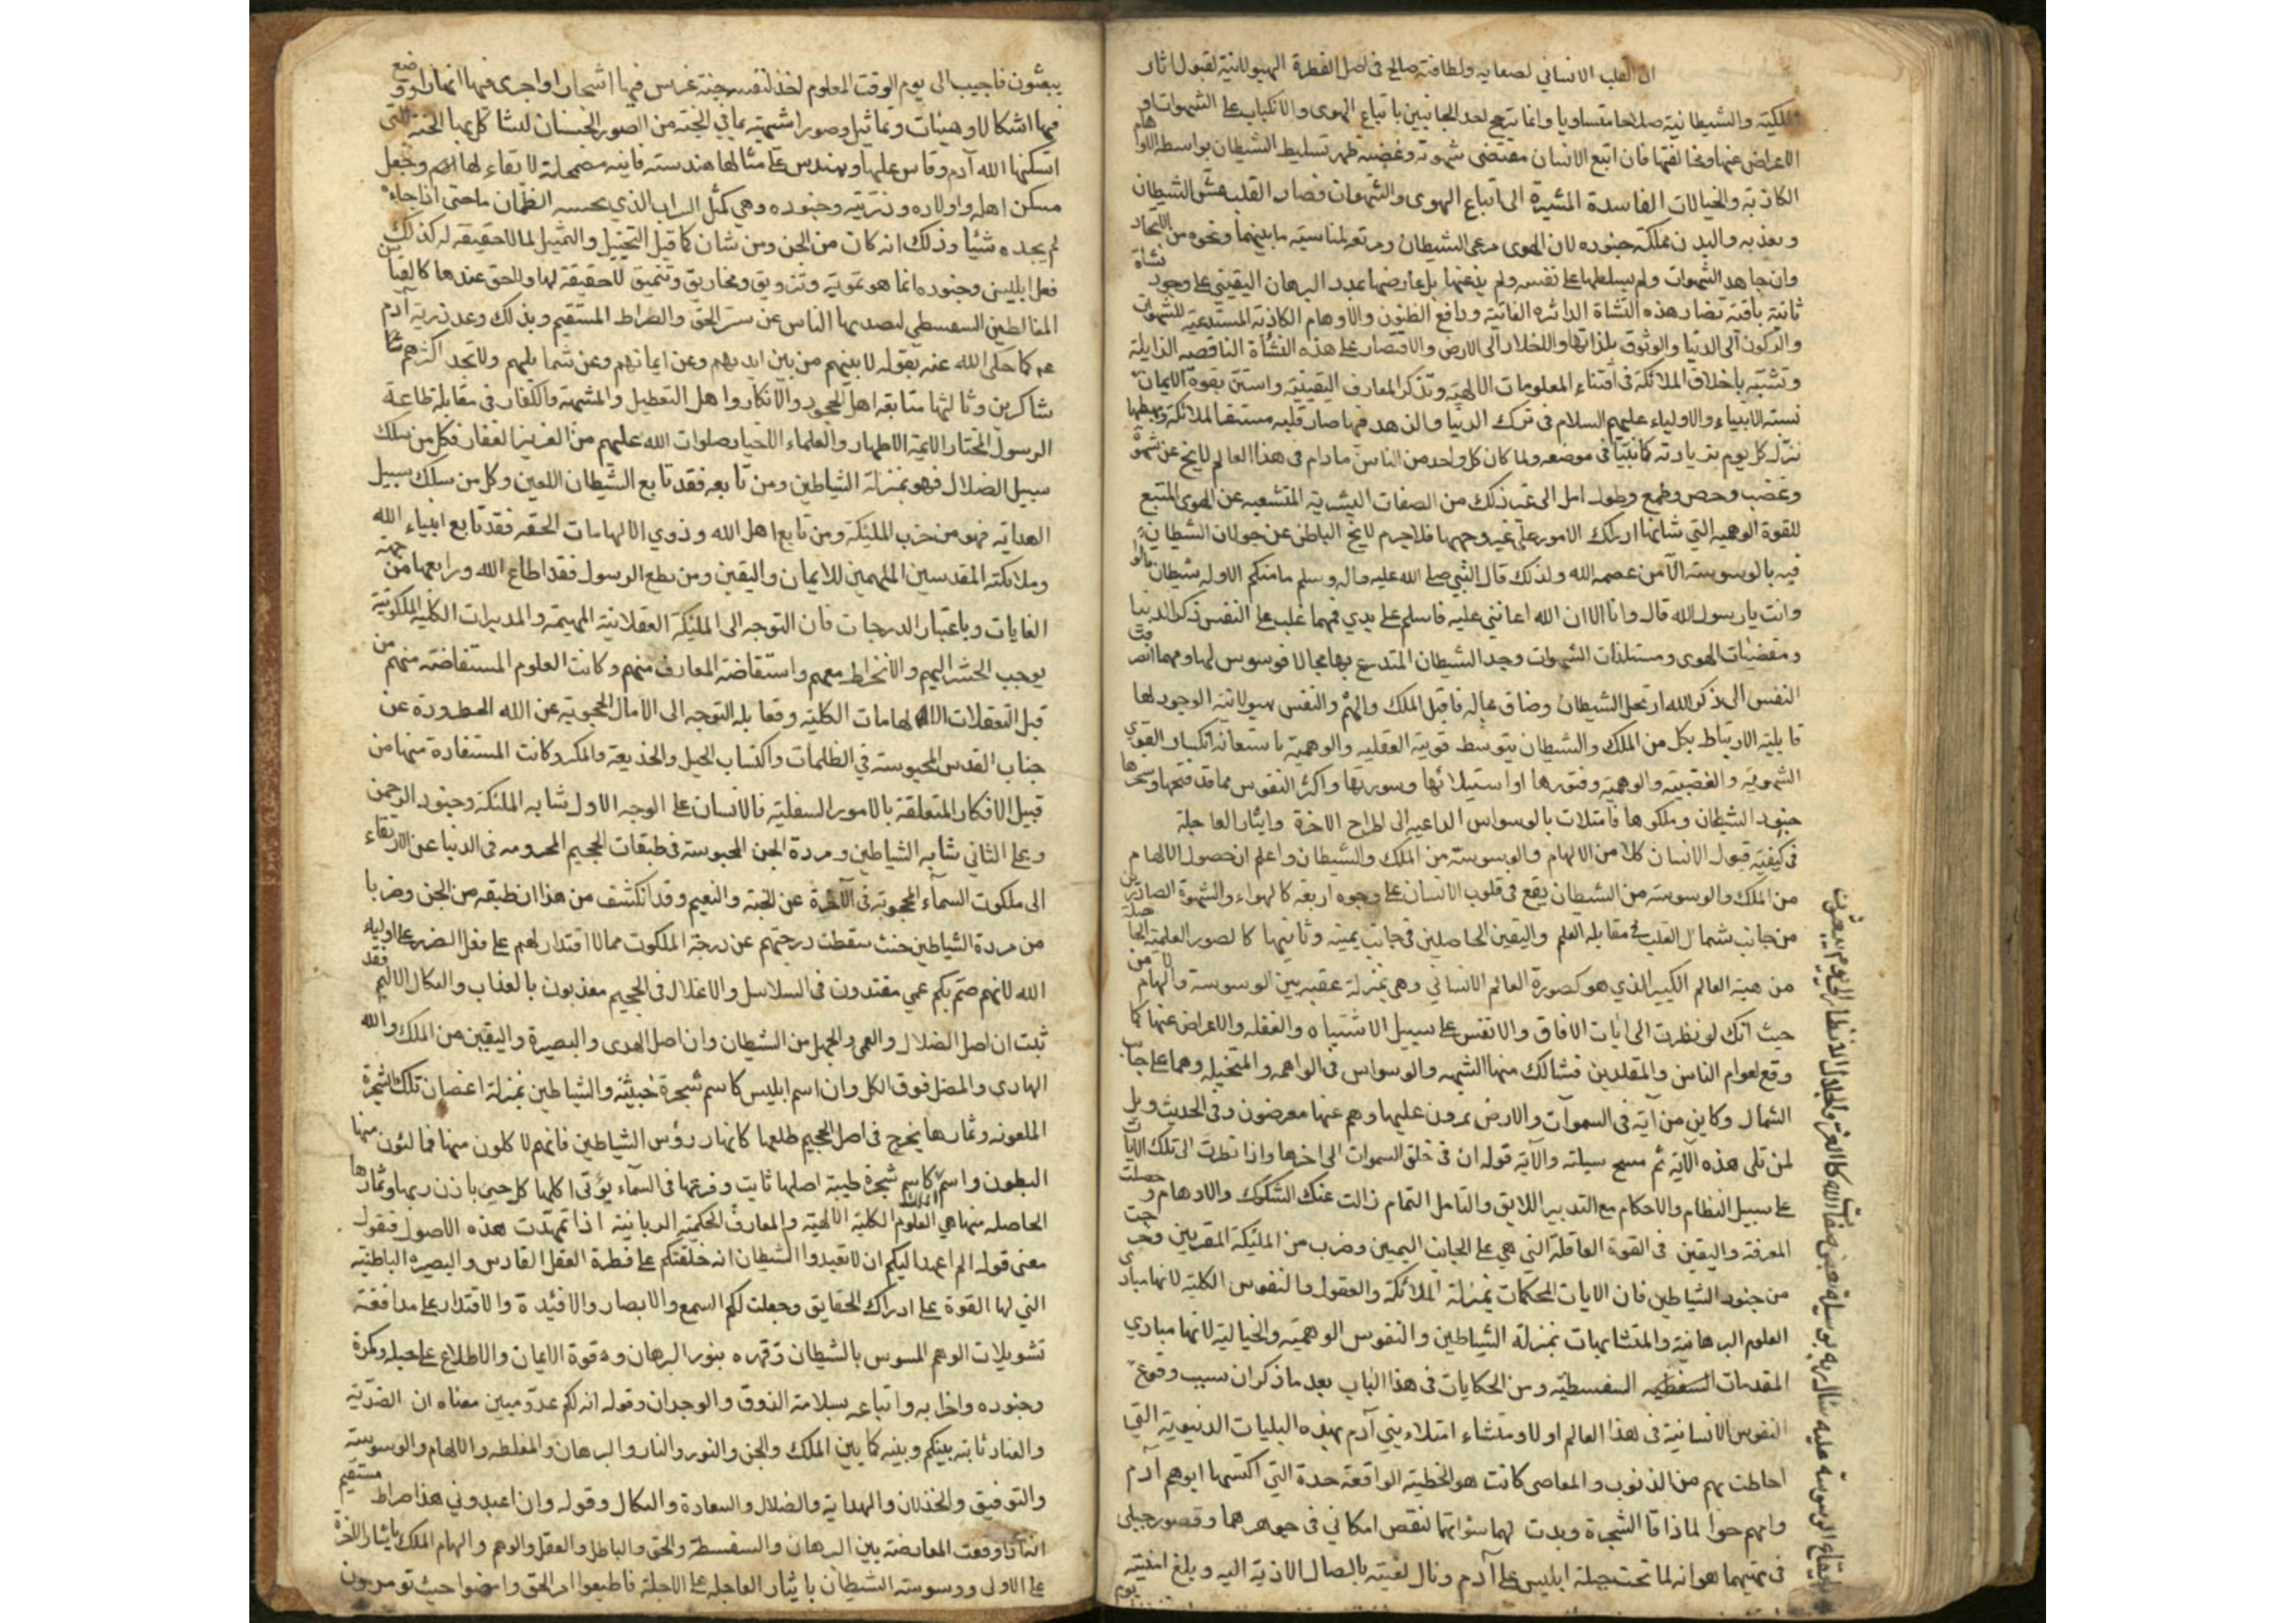 ان القلب الانساني لصفايه ولطافته صالح في اصل الفطرة الهيولانية لقبول اثار
الملكية والشيطانية صلاحا متساويا وانما يترجح احد الجانبين باتباع الهوى والانكباب على الشهوات او
الاعراض عنها ومخالفتها فان اتبع الانسان مقتضى شهوته وغضبه ظهر تسليط الشيطان بواسطة الاوهام
الكاذبة والخيالات الفاسدة المثيرة الى اتباع الهوى والشهوات فصار القلب عش الشيطان
ومعدنه والبدن مملكة جنوده لان الهوى مرعى الشيطان ومرتعه لمناسبة ما بينهما ونحوه من الاتحاد
وان جاهد الشهوات ولم يسلطها على نفسه ولم يذعنها بل عارضها بمدد البرهان اليقيني على وجود نشاة
ثانية باقية تضار هذه النشاة الداثره الفانية ودافع الظنون والاوهام الكاذبة المستدعية للشهوات
والركون الى الدنيا والوثوق بلذاتها والاخلاد الى الارض والاقتصار على هذه النشأة الناقصه الزايلة
وتشبه باخلاق الملائكة في اقتناء المعلومات الالهية وتذكر المعارف اليقينية واستن بقوة الايمان
نسبته الانبياء والاولياء عليهم السلام في ترك الدنيا والزهد فيها صار قلبه مستقر الملائكة ومهبطها
نزل كل يوم بزيارته كما نبينا في موضعه ولما كان كل واحد من الناس مادام في هذا العالم لا يخ عن شهوة
وغضب وحرص وطمع وطول امل الى غير ذلك من الصفات البشرية المتشعبة عن الهوى المتبع
للقوة الوهمية التي شانها ادراك الامور على غير وجهها فلا جرم لا يخ الباطن عن جولان الشيطان
فيه بالوسوسة الا من عصمه الله ولذلك قال النبي صلى الله عليه واله وسلم ما منكم الا وله شيطان قالوا
وانت يا رسول الله قال وانا الا ان الله اعانني عليه فاسلم على يدي فمهما غلب على النفس ذكر الدنيا
ومقتضيات الهوى ومستلذات الشهوات وجد الشيطان المتدرع بها مجالا فوسوس لها ومهما انصرفت
النفس الى ذكر الله ارتحل الشيطان وضاق مجاله فاقبل الملك والهم والنفس هيولانية الوجود لها
قابلية الارتباط بكل من الملك والشيطان بتوسط قوتيه العقليه والوهمية باستعانة انكسار القوى
الشهوية والغضبية والوهمية وفتورها او استيلائها وسورتها واكثر النفوس مما قد فتحها وسخرها
جنود الشيطان وملكوها فامتلات بالوسواس الداعيه الى اطراح الاخرة وايثار العاجلة
في كيفية قبول الانسان كلا من الالهام والوسوسة من الملك والشيطان واعلم ان حصول الالهام
من الملك والوسوسة من الشيطان يقع في قلوب الانسان على وجوه اربعه كالهواء والشهوة الصادرين
من جانب شمال القلب في مقابله العلم واليقين الحاصلين في جانب يمينه وثانيها كالصور العلمية الحاصلة
من هيئة العالم الكبير الذي هو كصورة العالم الانساني وهي بمنزلة عقبه بين الوسوسة والهام لا من
حيث انك لو نظرت الى ايات الافاق والانفس على سبيل الاشتباه والغفله والاعراض عنها كما
وقع لعوام الناس والمقلدين فنشا لك منها الشبهه والوسواس في الواهمه والمتخيله وهما على جانب
الشمال وكاين من آية في السموات والارض يمرون عليها وهم عنها معرضون وفي الحديث ويل
لمن تلى هذه الآية ثم مسح سبلته والآية قوله ان في خلق السموات الى اخرها واذا نظرت الى تلك الايات
على سبيل النظام والاحكام مع التدبير اللايق والتامل التمام زالت عنك الشكوك والاوهام وحصلت
المعرفة واليقين في القوة العاقلة التي هي على الجانب اليمين وضرب من الملئكة المقربين وحزب
من جنود الشياطين فان الايات المحكمات بمنزلة الملائكة والعقول والنفوس الكلية لانها مبادي
العلوم البرهانية والمتشابهات بمنزلة الشياطين والنفوس الوهمية والخيالية لانها مبادي
المقدمات السفسطية ومن الحكايات في هذا الباب بعد ما ذكر ان سبب وقوع
النفوس الانسانية في هذا العالم اولا ومنشاء ابتلاء بني آدم بهذه البليات الدنيوية التي
احاطت بهم من الذنوب والمعاصي كانت هو الخطية الواقعة حدة التي اكتسبها ابوهم آدم
وامهم حوا لما ذاقا الشجرة وبدت لهما سواتهما لنقص امكاني في جوهرهما وقصور جبلي
في تمتهيما هو انه لما تمت حيلة ابليس على آدم ونال بغيته بايصال الاذية اليه وبلغ امنيته
يوم
سال ربه بوسيلة بعض صفات الله كالعزة والجلال الانظار الى يوم يبعثون
يبعثون فاجيب الى يوم الوقت المعلوم اخذ لنفسه جنة غرس فيها اشجارا واجرى فيها انهارا ووضع
فيها اشكالا وهيئات وتماثيل وصورا شبيهة بما في الجنة من الصور الحسان ليشاكل بها الجنة التي
اسكنها الله آدم وقاس عليها وهندس على مثالها هندسته فانيه مضمحلة لا بقاء لها وجعل
مسكن اهله واولاده وذريته وجنوده وهي كمثل السراب الذي يحسبه الظمان ماء حتى اذا جاءه
لم يجده شيئا وذلك انه كان من الجن ومن شان كما قيل التخييل والتمثيل لما لا حقيقة له كذلك
فعل ابليس وجنوده انما هو تمويه وتزويق ومخاريق وتنميق لا حقيقة لها ولا حق عندها كالقياس
المغالطين السفسطي ليصد بها الناس عن سنن الحق والصراط المستقيم وبذلك وعد ذرية آدم
عم كما حكى الله عنه بقوله لاتينهم من بين ايديهم وعن ايمانهم وعن شمايلهم ولا تجد اكثرهم
شاكرين وثالثها متابعة اهل الجحود والانكار واهل التعطيل والمشبهة والكفار في مقابلة طاعة
الرسول المختار الايمة الاطهار والعلماء الاخيار صلوات الله عليهم من العزيز الغفار فكل من سلك
سبيل الضلال فهو بمنزلة الشياطين ومن تابعه فقد تابع الشيطان اللعين وكل من سلك سبيل
الهداية فهو من حزب الملئكة ومن تابع اهل الله وذوي الالهامات الحقه فقد تابع انبياء الله
وملائكته المقدسين الملهمين للايمان واليقين ومن يطع الرسول فقد اطاع الله ورابعها من جهة
الغايات وباعتبار الدرجات فان التوجه الى الملئكة العقلانية المهيمة والمدبرات الكلية الملكوتية
يوجب الحشر اليهم والانخراط معهم واستفاضة المعارف منهم وكانت العلوم المستفاضة منهم من
قبل التعقلات الالهامات الكلية ومقابله التوجه الى الامال المحجوبة عن الله المطرودة عن
جناب القدس المحبوسة في الظلمات واكتساب الحيل والخديعة والمكر وكانت المستفادة منها من
قبيل الافكار المتعلقة بالامور السفلية فالانسان على الوجه الاول شابه الملئكة وجنود الرحمن
وعلى الثاني شابه الشياطين ومردة الجن المحبوسة في طبقات الجحيم المحرومه في الدنيا عن الارتقاء
الى ملكوت السماء المحجوبة في الآخرة عن الجنة والنعيم وقد انكشف من هذا ان طبقه من الجن وضربا
من مردة الشياطين حيث سقطت درجتهم عن درجة الملكوت مما لا اقتدار لهم على فعل الضر على اولياء
الله لانهم صم بكم عمي مقيدون في السلاسل والاغلال في الجحيم معذبون بالعذاب والنكال الاليم فقد
ثبت ان اصل الضلال والعمى والجهل من الشيطان وان اصل الهدى والبصيرة واليقين من الملك والله
الهادي والمضل فوق الكل وان اسم ابليس كاسم شجرة خبيثة والشياطين بمنزلة اغصان تلك الشجرة
الملعونه وثمارها يخرج في اصل الجحيم طلعها كانها رؤس الشياطين فانهم لاكلون منها فمالئون منها
البطون واسم الملك كاسم شجرة طيبة اصلها ثابت وفرعها في السماء يؤتى اكلها كل حين باذن ربها وثمارها
الحاصله منها هي العلوم الكلية الالهية والمعارف الحكمية الربانية اذا تمهدت هذه الاصول فنقول
معنى قوله الم اعهد اليكم ان لا تعبدوا الشيطان انه خلقتكم على فطرة العقل القادس والبصيرة الباطنية
التي لها القوة على ادراك الحقايق وجعلت لكم السمع والابصار والافئدة والاقتدار على مدافعة
تسويلات الوهم الموسوس بالشيطان وقهره بنور البرهان وقوة الايمان والاطلاع على حيله ومكره
وجنوده واحزابه واتباعه بسلامة الذوق والوجدان وقوله انه لكم عدو مبين معناه ان الضدية
والعناد ثابته بينكم وبينه كما بين الملك والجن والنور والنار والبرهان والمغلطه والالهام والوسوسة
والتوفيق والخذلان والهداية والضلال والسعادة والنكال وقوله وان اعبدوني هذا صراط مستقيم
وقعت المعارضة بين البرهان والسفسطة والحق والباطل والعقل والوهم والهام الملك بايثار الاخرة
على الاولى ووسوسته الشيطان بايثار العاجلة على الاجلة فاطيعوا امر الحق وامضوا حيث تومرون